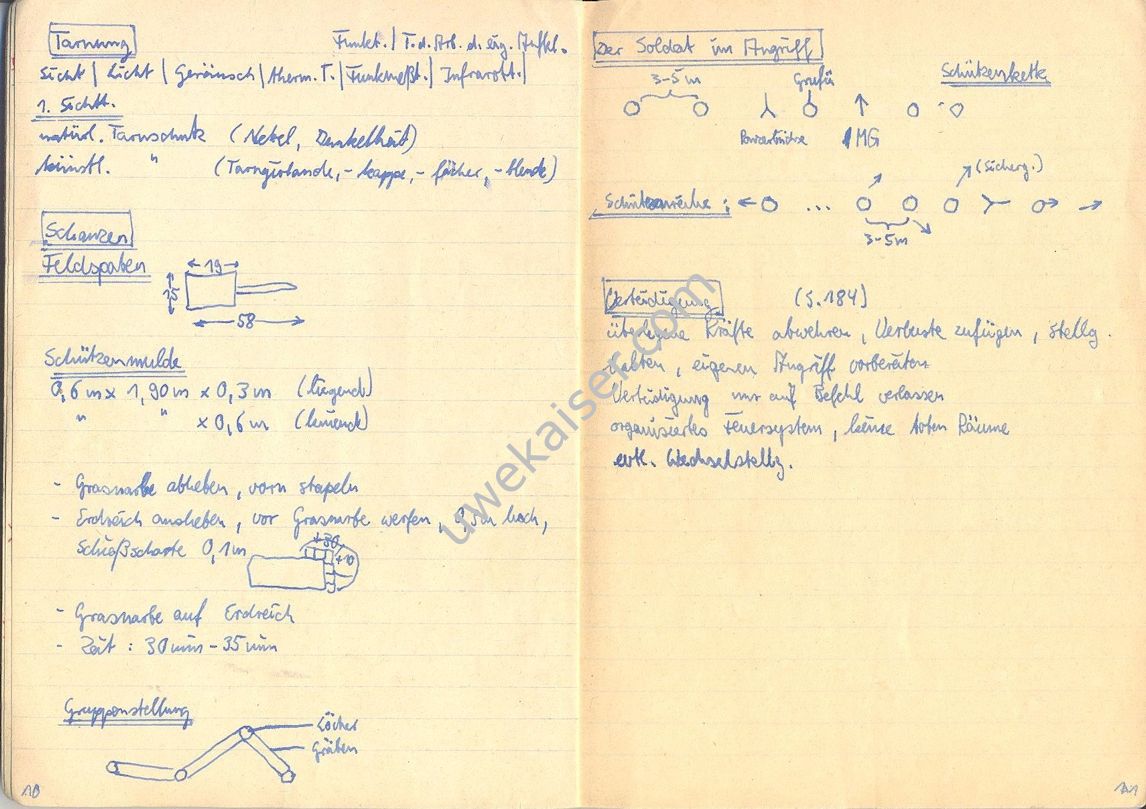 Tarnung
Funkt. / T.d. Arb. d. eig. Aufkl.
Sicht | Licht | Geräusch | therm. T. | Funkmeßt. | Infrarott. |
1. Sichtt.
natürl. Tarnschutz (Nebel, Dunkelheit)
künstl. " (Tarngirlande, - kappe, - fächer, - blende)
Schanzen
Feldspaten
19
15
58
Schützenmulde
0,6 m x 1,90 m x 0,3 m (liegend)
" " x 0,6 m (knieend)
- Grasnarbe abheben, vorn stapeln
- Erdreich ausheben, vor Grasnarbe werfen, hoch,
Schießscharte 0,1 m
30
10
- Grasnarbe auf Erdreich
- Zeit : 30 min - 35 min
Gruppenstellung
Löcher
Gräben
10
Der Soldat im Angriff
3-5 m
Grufü
Schützenkette
Panzerbüchse
MG
(Sicherg.)
Schützenreihe :
...
3-5 m
Verteidigung (S. 184)
überlegene Kräfte abwehren, Verluste zufügen, Stellg.
halten, eigenen Angriff vorbereiten
Verteidigung nur auf Befehl verlassen
organisiertes Feuersystem, keine toten Räume
evtl. Wechselstellg.
11
uwekaiser.com